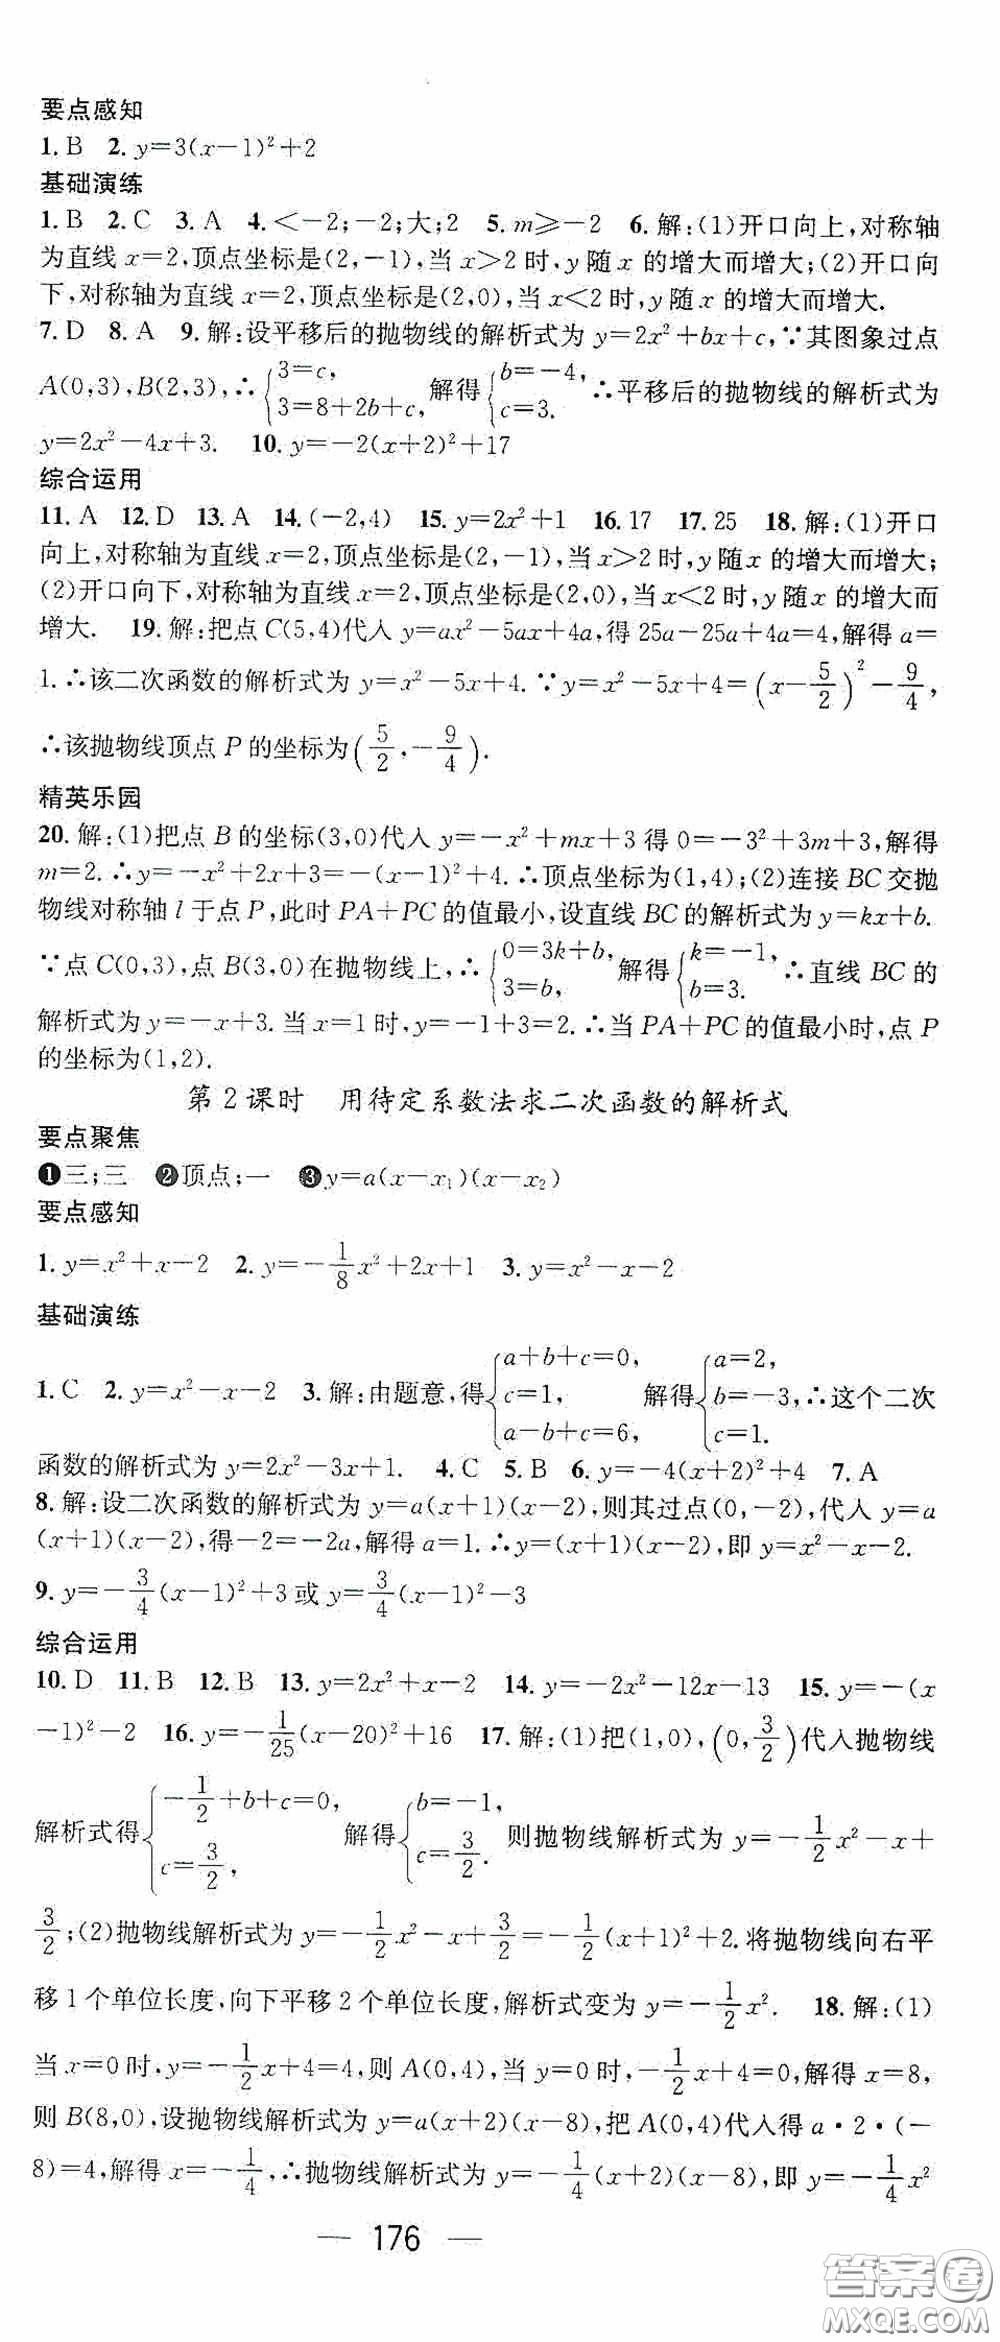 要点感知
1. B 2. y=3(x-1)²+2
基础演练
1. B 2. C 3. A 4. <-2;-2;大;2 5. m≥-2 6. 解:(1)开口向上,对称轴
为直线 x=2,顶点坐标是(2,-1),当 x>2 时,y 随 x 的增大而增大;(2)开口向
下,对称轴为直线 x=2,顶点坐标是(2,0),当 x<2 时,y 随 x 的增大而增大.
7. D 8. A 9. 解:设平移后的抛物线的解析式为 y=2x²+bx+c,∵其图象过点
A(0,3),B(2,3),∴{3=c, 3=8+2b+c, 解得{b=-4, c=3. ∴平移后的抛物线的解析式为
y=2x²-4x+3. 10. y=-2(x+2)²+17
综合运用
11. A 12. D 13. A 14. (-2,4) 15. y=2x²+1 16. 17 17. 25 18. 解:(1)开口
向上,对称轴为直线 x=2,顶点坐标是(2,-1),当 x>2 时,y 随 x 的增大而增大;
(2)开口向下,对称轴为直线 x=2,顶点坐标是(2,0),当 x<2 时,y 随 x 的增大而
增大. 19. 解:把点 C(5,4)代入 y=ax²-5ax+4a,得 25a-25a+4a=4,解得 a=
1. ∴该二次函数的解析式为 y=x²-5x+4. ∵y=x²-5x+4=(x-5/2)²-9/4,
∴该抛物线顶点 P 的坐标为(5/2,-9/4).
精英乐园
20. 解:(1)把点 B 的坐标(3,0)代入 y=-x²+mx+3 得 0=-3²+3m+3,解得
m=2. ∴y=-x²+2x+3=-(x-1)²+4. ∴顶点坐标为(1,4);(2)连接 BC 交抛
物线对称轴 l 于点 P,此时 PA+PC 的值最小,设直线 BC 的解析式为 y=kx+b.
∵点 C(0,3),点 B(3,0)在抛物线上,∴{0=3k+b, 3=b, 解得{k=-1, b=3. ∴直线 BC 的
解析式为 y=-x+3. 当 x=1 时,y=-1+3=2. ∴当 PA+PC 的值最小时,点 P
的坐标为(1,2).
第 2 课时 用待定系数法求二次函数的解析式
要点聚焦
❶三;三 ❷顶点;一 ❸y=a(x-x₁)(x-x₂)
要点感知
1. y=x²+x-2 2. y=-1/8x²+2x+1 3. y=x²-x-2
基础演练
1. C 2. y=x²-x-2 3. 解:由题意,得{a+b+c=0, c=1, a-b+c=6, 解得{a=2, b=-3, c=1. ∴这个二次
函数的解析式为 y=2x²-3x+1. 4. C 5. B 6. y=-4(x+2)²+4 7. A
8. 解:设二次函数的解析式为 y=a(x+1)(x-2),则其过点(0,-2),代入 y=a
(x+1)(x-2),得-2=-2a,解得 a=1. ∴y=(x+1)(x-2),即 y=x²-x-2.
9. y=-3/4(x-1)²+3 或 y=3/4(x-1)²-3
综合运用
10. D 11. B 12. B 13. y=2x²+x-2 14. y=-2x²-12x-13 15. y=-(x
-1)²-2 16. y=-1/25(x-20)²+16 17. 解:(1)把(1,0),(0,3/2)代入抛物线
解析式得{-1/2+b+c=0, c=3/2, 解得{b=-1, c=3/2. 则抛物线解析式为 y=-1/2x²-x+
3/2;(2)抛物线解析式为 y=-1/2x²-x+3/2=-1/2(x+1)²+2. 将抛物线向右平
移 1 个单位长度,向下平移 2 个单位长度,解析式变为 y=-1/2x². 18. 解:(1)
当 x=0 时,y=-1/2x+4=4,则 A(0,4),当 y=0 时,-1/2x+4=0,解得 x=8,
则 B(8,0),设抛物线解析式为 y=a(x+2)(x-8),把 A(0,4)代入得 a·2·(-
8)=4,解得 x=-1/4,∴抛物线解析式为 y=-1/4(x+2)(x-8),即 y=-1/4x²
— 176 —
答案圈
MXQE.COM